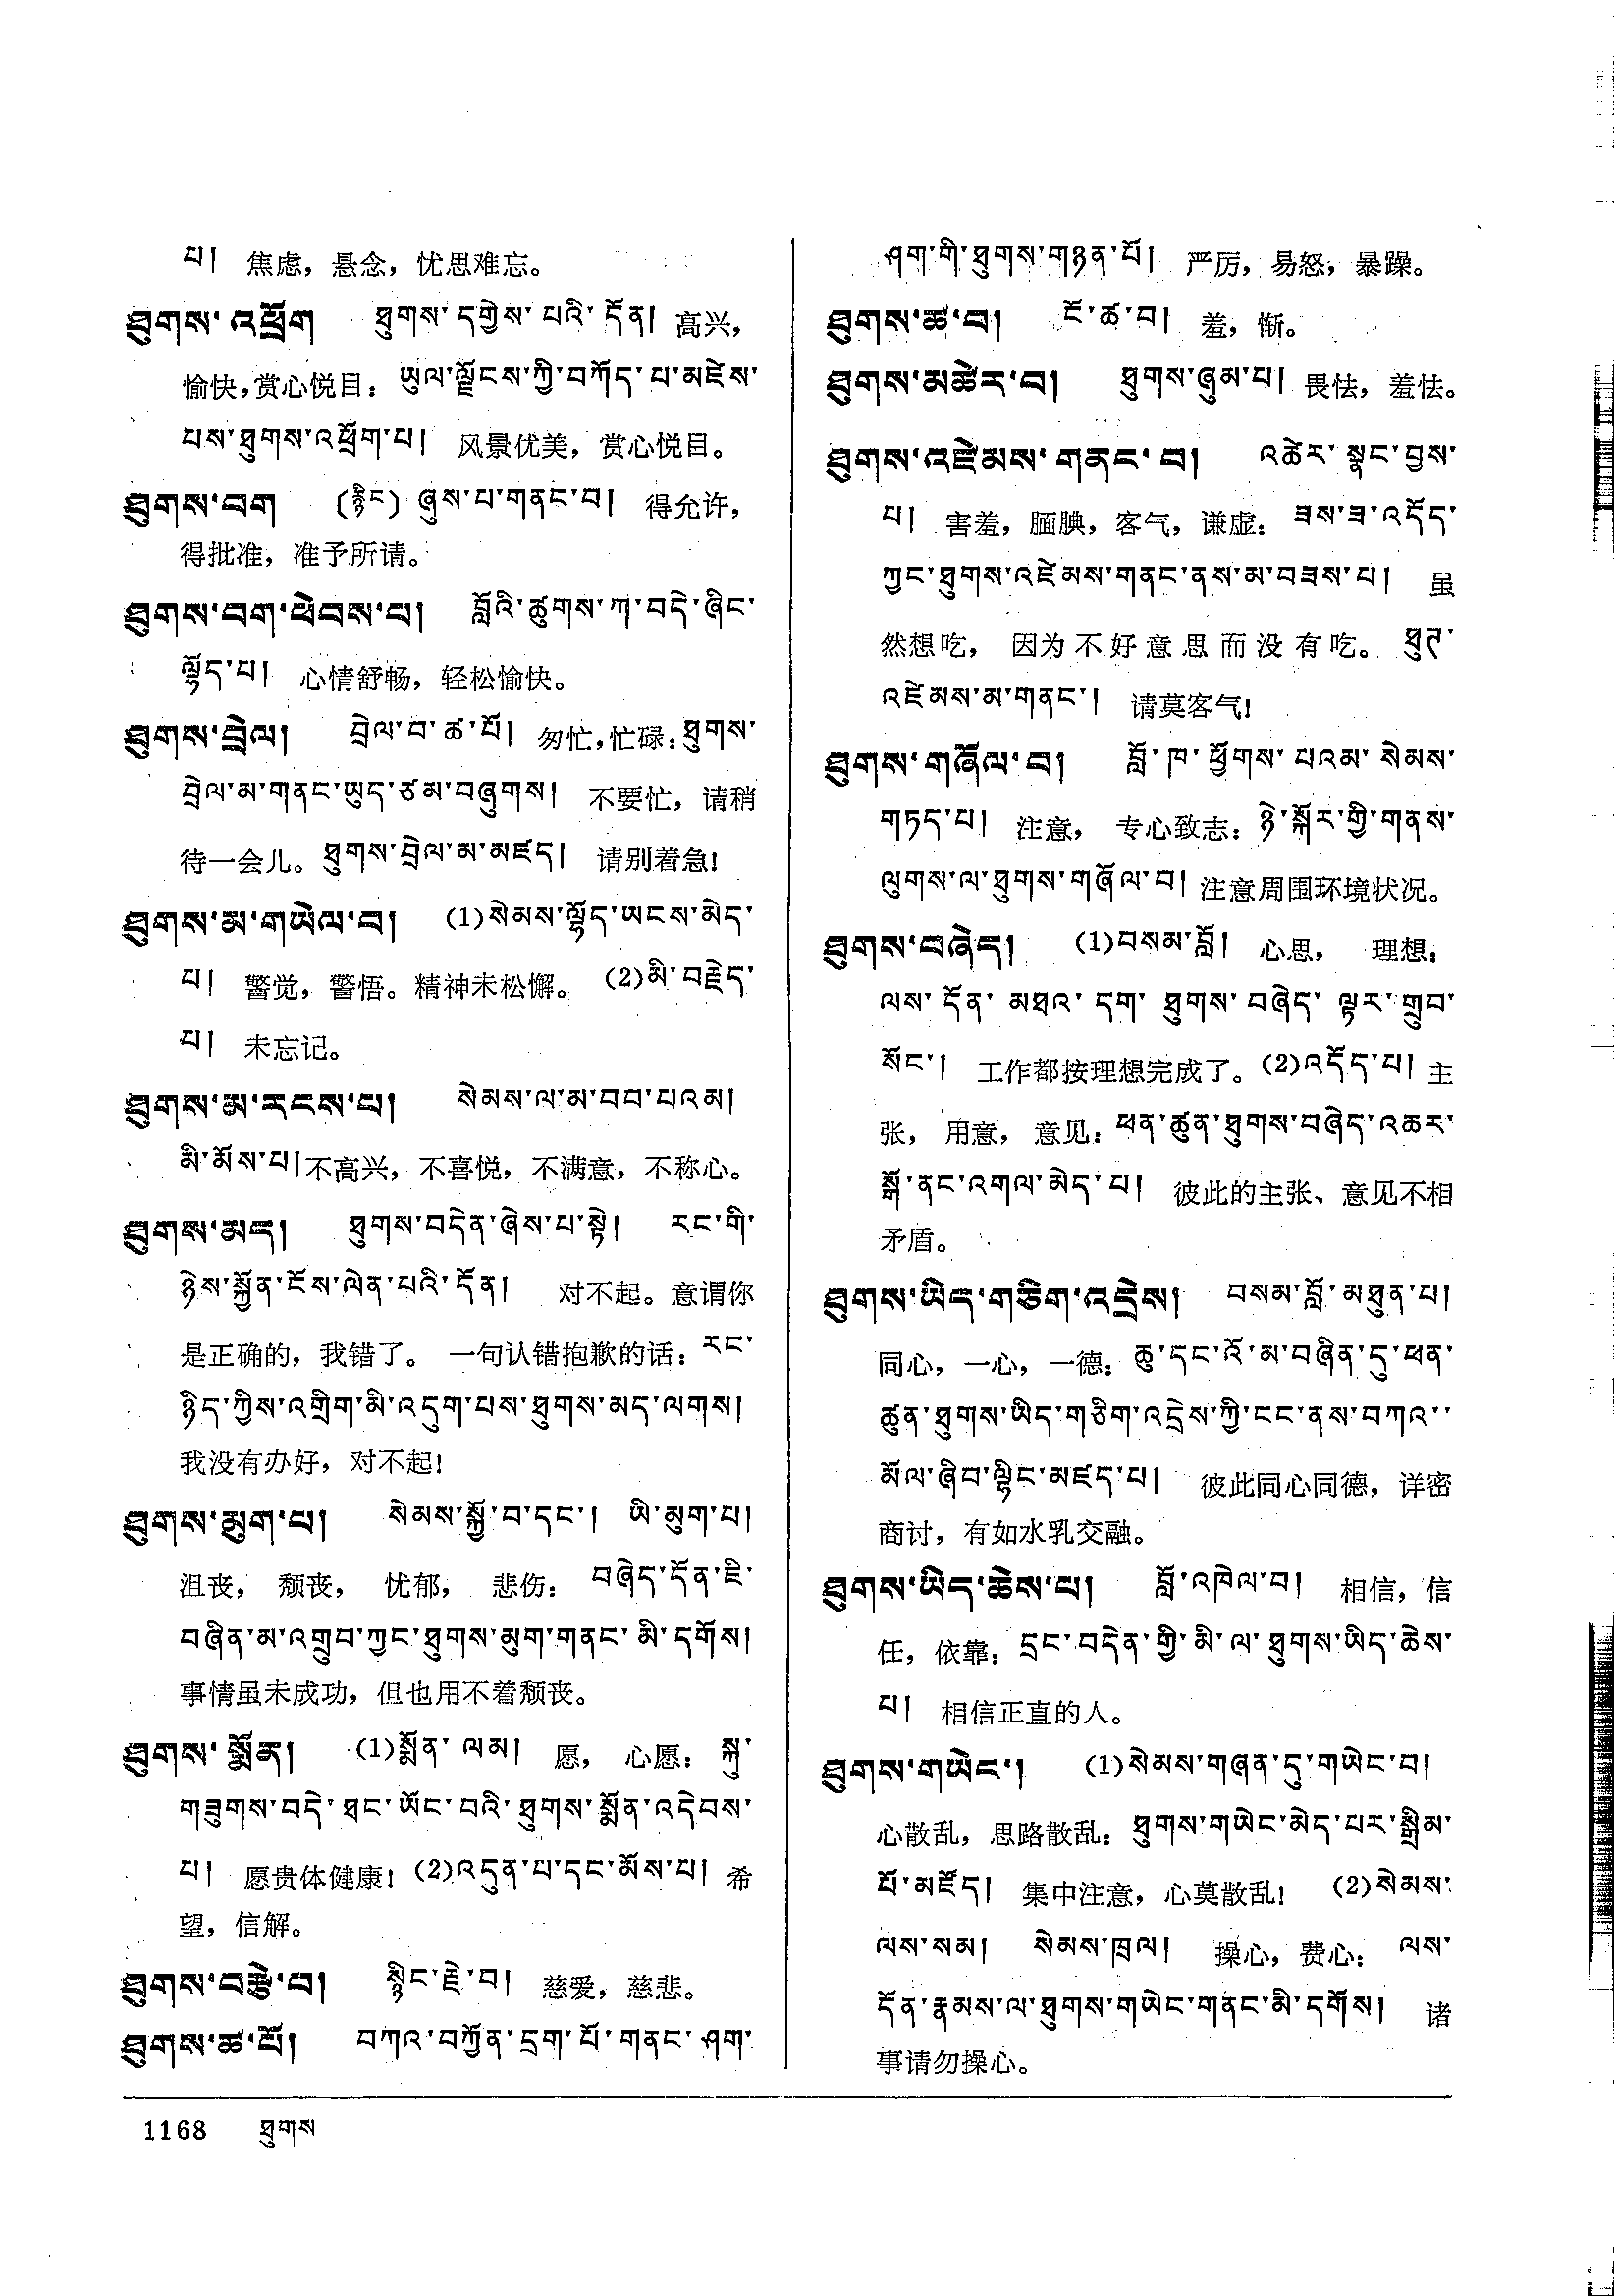 པ། 焦虑，悬念，忧思难忘。
ཐུགས་འཕྲོག ཐུགས་དགྱེས་པའི་དོན། 高兴，
愉快，赏心悦目：ཡུལ་ལྗོངས་ཀྱི་བཀོད་པ་མཛེས་
པས་ཐུགས་འཕྲོག་པ། 风景优美，赏心悦目。
ཐུགས་བག (རྙིང) ཞུས་པ་གནང་བ། 得允许，
得批准，准予所请。
ཐུགས་བག་ཕེབས་པ། བློའི་ཚུགས་ཀ་བདེ་ཞིང་
ལྷོད་པ། 心情舒畅，轻松愉快。
ཐུགས་བྲེལ། བྲེལ་བ་ཚ་པོ། 匆忙，忙碌：ཐུགས་
བྲེལ་མ་གནང་ཡུད་ཙམ་བཞུགས། 不要忙，请稍
待一会儿。ཐུགས་བྲེལ་མ་མཛད། 请别着急！
ཐུགས་མ་གཡེལ་བ། (1)སེམས་ལྷོད་ཡངས་མེད་
པ། 警觉，警悟。精神未松懈。 (2)མི་བརྗེད་
པ། 未忘记。
ཐུགས་མ་རངས་པ། སེམས་ལ་མ་བབ་པའམ།
མི་མོས་པ།不高兴，不喜悦，不满意，不称心。
ཐུགས་མད། ཐུགས་བདེན་ཞེས་པ་སྟེ། རང་གི་
ཉེས་སྐྱོན་ངོས་ལེན་པའི་དོན། 对不起。意谓你
是正确的，我错了。 一句认错抱歉的话：རང་
ཉིད་ཀྱིས་འགྲིག་མི་འདུག་པས་ཐུགས་མད་ལགས།
我没有办好，对不起！
ཐུགས་མུག་པ། སེམས་སྐྱོ་བ་དང་། ཡི་མུག་པ།
沮丧， 颓丧， 忧郁， 悲伤： བཞེད་དོན་ཇི་
བཞིན་མ་འགྲུབ་ཀྱང་ཐུགས་མུག་གནང་མི་དགོས།
事情虽未成功，但也用不着颓丧。
ཐུགས་སྨོན། (1)སྨོན་ལམ། 愿， 心愿： སྐུ་
གཟུགས་བདེ་ཐང་ཡོང་བའི་ཐུགས་སྨོན་འདེབས་
པ། 愿贵体健康！ (2)འདུན་པ་དང་མོས་པ། 希
望，信解。
ཐུགས་བརྩེ་བ། སྙིང་རྗེ་བ། 慈爱，慈悲。
ཐུགས་ཚ་པོ། བཀའ་བཀྱོན་དྲག་པོ་གནང་ཤག་
ཤག་གི་ཐུགས་གཉན་པོ། 严厉，易怒，暴躁。
ཐུགས་ཚ་བ། ངོ་ཚ་བ། 羞，惭。
ཐུགས་མཚེར་བ། ཐུགས་ཞུམ་པ། 畏怯，羞怯。
ཐུགས་འཛེམས་གནང་བ། འཚེར་སྣང་བྱས་
པ། 害羞，腼腆，客气，谦虚： ཟས་ཟ་འདོད་
ཀྱང་ཐུགས་འཛེམས་གནང་ནས་མ་བཟས་པ། 虽
然想吃， 因为不好意思而没有吃。 ཐུཊ་
འཛེམས་མ་གནང་། 请莫客气！
ཐུགས་གཞོལ་བ། བློ་ཁ་ཕྱོགས་པའམ་སེམས་
གཏད་པ། 注意， 专心致志：ཉེ་སྐོར་གྱི་གནས་
ལུགས་ལ་ཐུགས་གཞོལ་བ། 注意周围环境状况。
ཐུགས་བཞེད། (1)བསམ་བློ། 心思， 理想：
ལས་དོན་མཐའ་དག་ཐུགས་བཞེད་ལྟར་གྲུབ་
སོང་། 工作都按理想完成了。(2)འདོད་པ། 主
张， 用意， 意见：ཕན་ཚུན་ཐུགས་བཞེད་འཆར་
སྒོ་ནང་འགལ་མེད་པ། 彼此的主张、意见不相
矛盾。
ཐུགས་ཡིད་གཅིག་འདྲེས། བསམ་བློ་མཐུན་པ།
同心，一心，一德：ཆུ་དང་འོ་མ་བཞིན་དུ་ཕན་
ཚུན་ཐུགས་ཡིད་གཅིག་འདྲེས་ཀྱི་ངང་ནས་བཀའ་་
མོལ་ཞིབ་ལྷིང་མཛད་པ། 彼此同心同德，详密
商讨，有如水乳交融。
ཐུགས་ཡིད་ཆེས་པ། བློ་འཁེལ་བ། 相信，信
任，依靠：དྲང་བདེན་གྱི་མི་ལ་ཐུགས་ཡིད་ཆེས་
པ། 相信正直的人。
ཐུགས་གཡེང་། (1)སེམས་གཞན་དུ་གཡེང་བ།
心散乱，思路散乱：ཐུགས་གཡེང་མེད་པར་སྒྲིམ་
པོ་མཛོད། 集中注意，心莫散乱！ (2)སེམས་
ལས་སམ། སེམས་ཁྲལ། 操心，费心： ལས་
དོན་རྣམས་ལ་ཐུགས་གཡེང་གནང་མི་དགོས། 诸
事请勿操心。
1168 ཐུགས